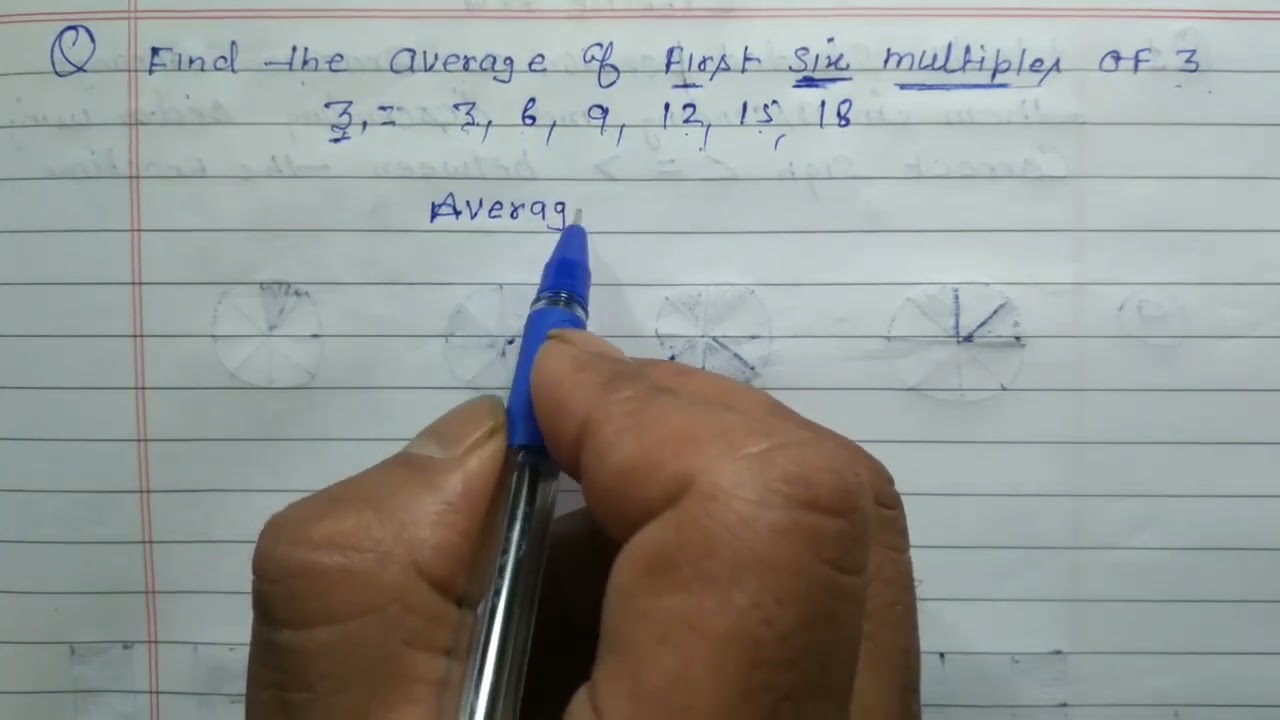 Q Find the average of First six multiples of 3
3, = 3, 6, 9, 12, 15, 18
Averag